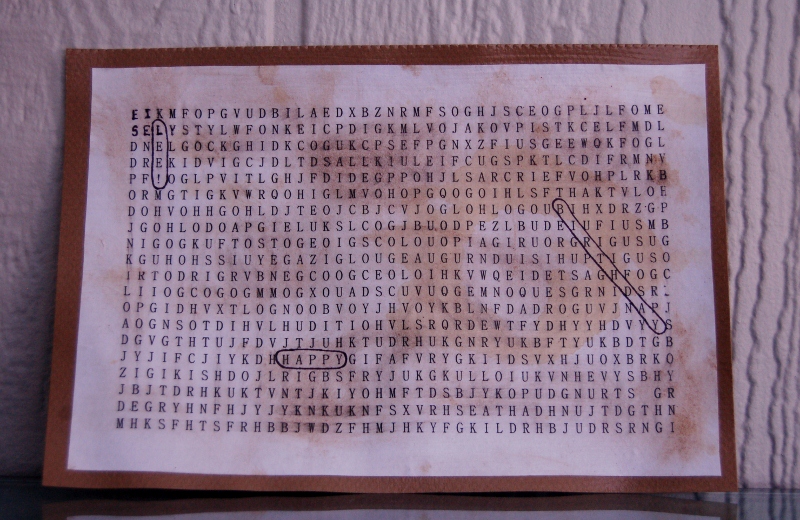 E I K M F O P G V U D B I L A E D X B Z N R M F S O G H J S C E O G P L J L F O M E
S E L Y S T Y L W F O N K E I C P D I G K M L V O J A K O V P I S T K C E L F M D L
D N E L G O C K G H I D K C O G U K C P S E F P G N X Z F I U S G E E W Q K F O G L
D R E K I D V I G C J D L T D S A L L K I U L E I F C U G S P K T L C D I F R M N V
P F ! O G L P V I T L G H J F D I D E G P P O H J L S A R C R I E F V O H P L R K B
O R M G T I G K V W R Q O H I G L M V O H O P G Q O G O I H L S F T H A K T V L O E
D O H V O H H G O H L D J T E O J C B J C V J O G L O H L O G O U B I H X D R Z G P
J G O H L O D O A P G I E L U K S L C O G J B U O D P E Z L B U D E I U F I U S M B
N I G O G K U F T O S T O G E O I G S C O L O U O P I A G I R U O R G R I G U S U G
K G U H O H S S I U Y E G A Z I G L O U G E A U G U R N D U I S I H U P T I G U S O
I R T O D R I G R V B N E G C O O G C E O L O I H K V W Q E I D E T S A G H F O G C
L I I O G C O G O G M M O G X O U A D S C U V U Q G E M N O Q U E S G R N I D S R
O P G I D H V X T L O G N O O B V O Y J H V O Y K B L N F D A D R O G U V J N A P J
A O G N S O T D I H V L H U D I T I O H V L S R Q R D E W T F Y D H Y Y H D V Y Y S
D G V G T H T U J O F D V J T J U H K T U D R H U K G N R Y U K B F T Y U K B D T G B
J Y J I F C J I Y K D H H A P P Y G I F A F V R Y G K I I D S V X H J U O X B R K O
Z I G I K I S H D O J L R I G B S F R Y J U K G K U L L O I U K V N H E V Y S B H Y
J B J T D R H K U K T V N T J K I Y O H M F T D S B J Y K O P U D G N U R T S G R
D E G R Y H N F H J Y J Y K N K U K N F S X V R H S E A T H A D H N U J T D G T H N
M H K S F H T S F R H B B J W D Z F H M J H K Y F G K I L D R H B J U D R S R N G I